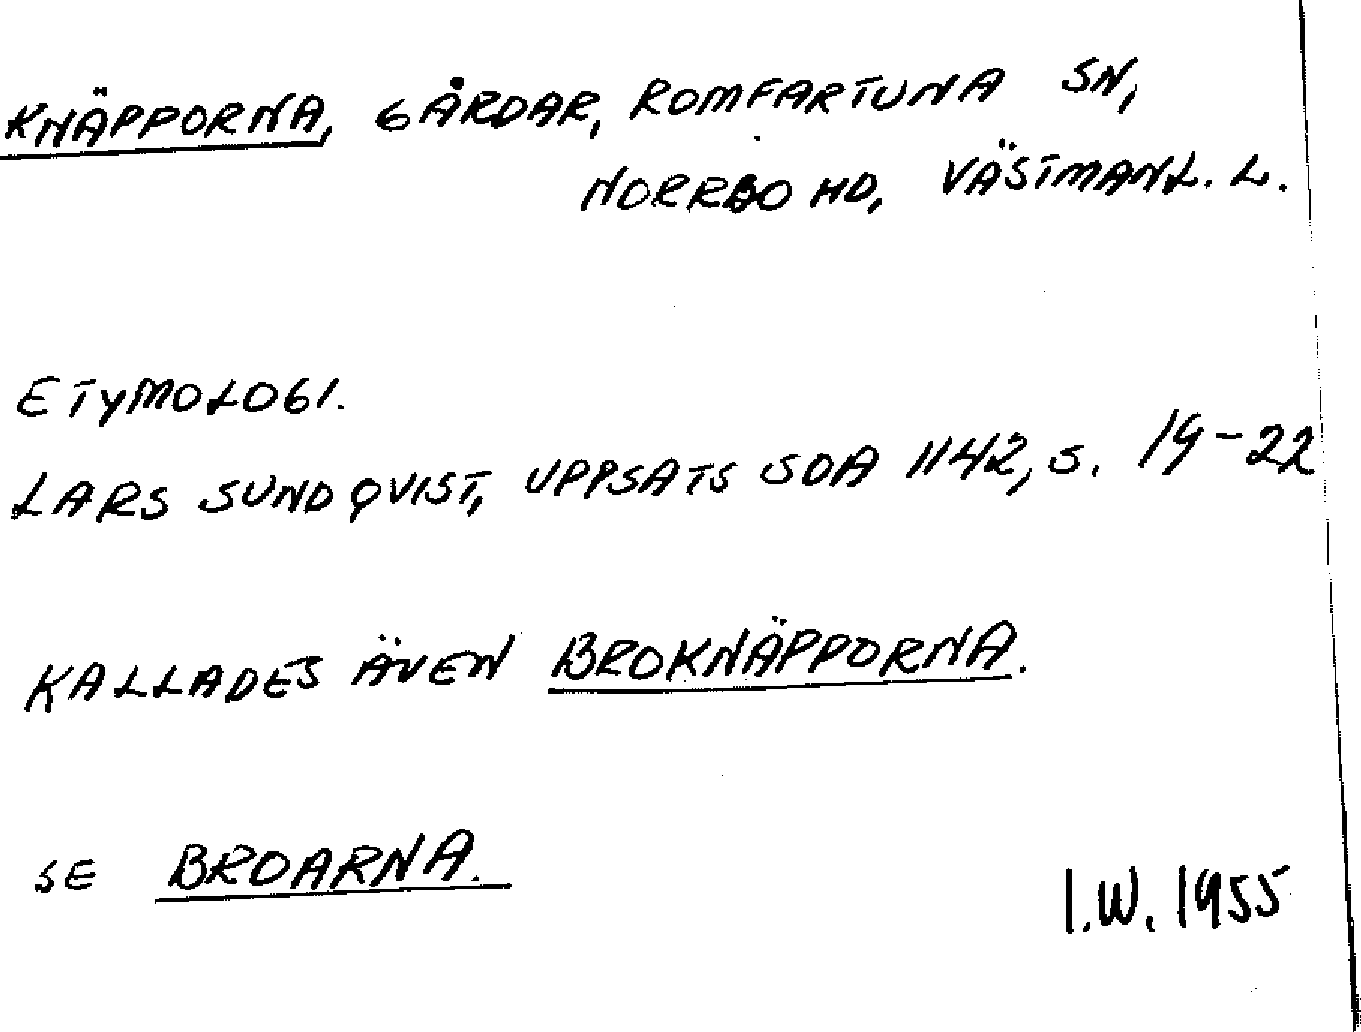 KNÄPPORNA, GÅRDAR, ROMFARTUNA SN,
NORRBO HD, VÄSTMANL. L.
ETYMOLOGI.
LARS SUNDQVIST, UPPSATS SOA 1142, S. 19-22
KALLADES ÄVEN BROKNÄPPORNA.
SE BROARNA.
I.W. 1955